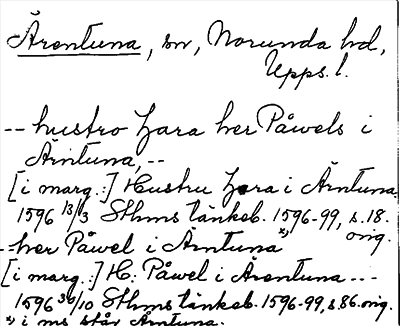 Ärentuna, sn, Norunda hd,
Upps. l.
-- hustro Zara her Påwels i
Ärntuna, --
[i marg.:] Hustru Zara i Ärntuna.
1596 13/3 Sthms tänkeb. 1596-99, s. 18.
orig.
-- her Påwel i Ärntuna *)
[i marg.:] H: Påwel i Ärentuna ---
1596 30/10 Sthms tänkeb. 1596-99, s. 86. orig.
*) i ms står Ärntuna.